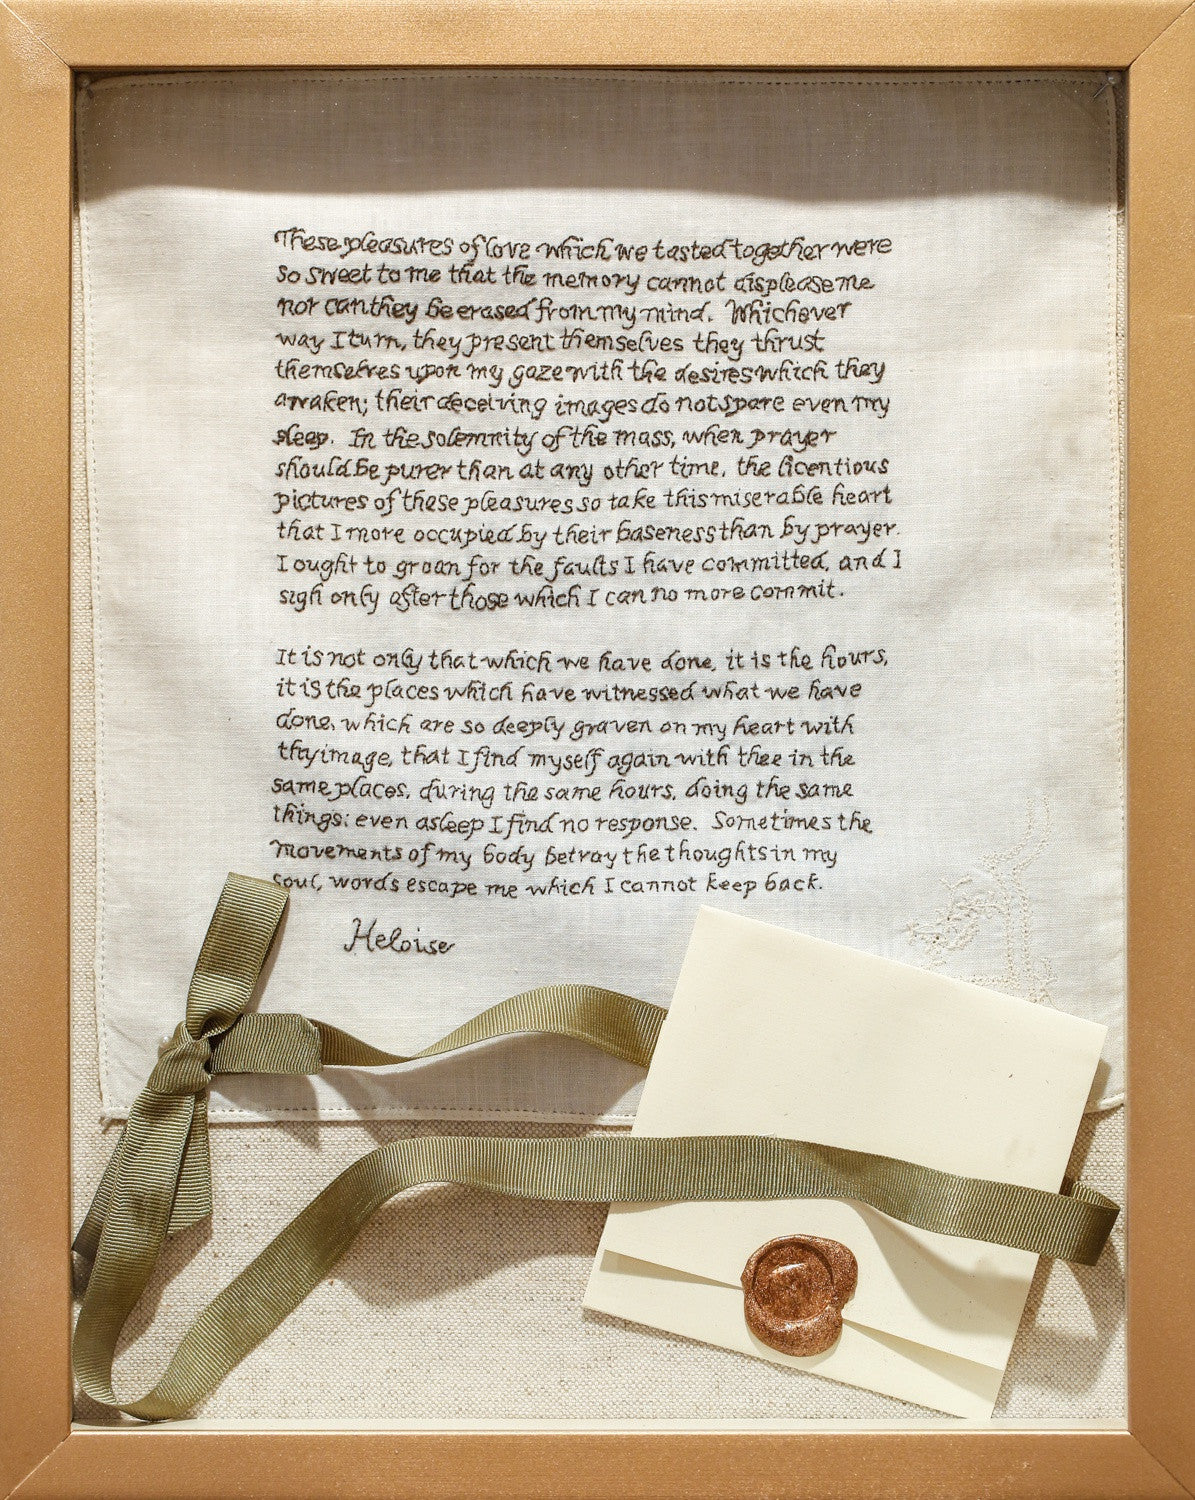 These pleasures of love which we tasted together were
so sweet to me that the memory cannot displease me
nor can they be erased from my mind. Whichever
way I turn, they present themselves they thrust
themselves upon my gaze with the desires which they
awaken; their deceiving images do not spare even my
sleep. In the solemnity of the mass, when prayer
should be purer than at any other time, the licentious
pictures of these pleasures so take this miserable heart
that I more occupied by their baseness than by prayer.
I ought to groan for the faults I have committed, and I
sigh only after those which I can no more commit.
It is not only that which we have done, it is the hours,
it is the places which have witnessed what we have
done, which are so deeply graven on my heart with
thy image, that I find myself again with thee in the
same places, during the same hours, doing the same
things: even asleep I find no response. Sometimes the
movements of my body betray the thoughts in my
soul, words escape me which I cannot keep back.
Heloise